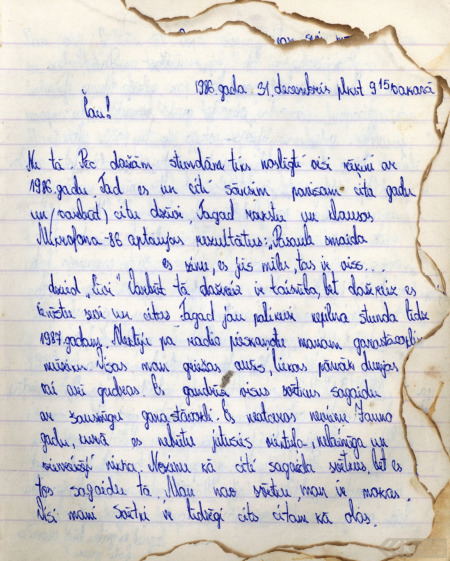 1986. gada 31. decembris plkst 9 15 vakarā
Čau!
Nu tā. Pēc dažām stundām tiks noslēgti visi rēķini ar
1986. gadu. Tad es un citi sāksim pavisam citu gadu
un (varbūt) citu dzīvi. Tagad rakstu un klausos
Mikrofona-86 aptaujas rezultātus: „Pasaule smaida
es zinu, es jūs mīlu, tas ir viss...
dzied „Līvi" Varbūt tā dažreiz ir taisnība, bet dažreiz es
ienīstu sevi un citus Tagad jau palikusi nepilna stunda līdz
1987. gadam. Meklēju pa radio piemērotu manam garastāvoklim
mūziku. Visas man griežas ausīs, liekas pārāk dumjas
vai arī gudras. Es gandrīz visus svētkus sagaidu
ar šausmīgu garastāvokli. Es neatceros nevienu Jauno
gadu, kurā es nebūtu jutusies vientuļa, nelaimīga un
nevienai nika. Nezinu kā citi sagaida svētkus, bet es
tos sagaidu tā. Man nav svētku, man ir mokas.
Visi mani svētki ir līdzīgi cits citam kā olas.